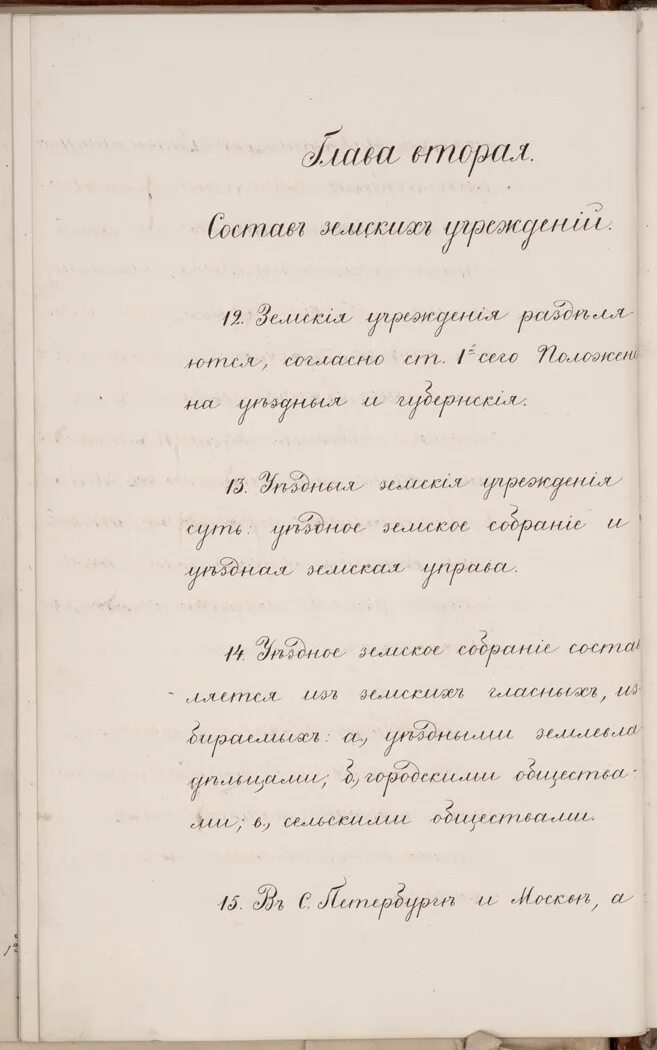 Глава вторая.
Составъ земскихъ учрежденій.
12. Земскія учрежденія раздѣля-
ются, согласно ст. 1й сего Положен
на уѣздныя и губернскія.
13. Уѣздныя земскія учрежденія
суть: уѣздное земское собраніе и
уѣздная земская управа.
14. Уѣздное земское собраніе соста
вляется изъ земскихъ гласныхъ, из
бираемыхъ: а, уѣздными землевла
дѣльцами; б, городскими общества-
ми; в, сельскими обществами.
15. Въ С. Петербургѣ и Москвѣ, а